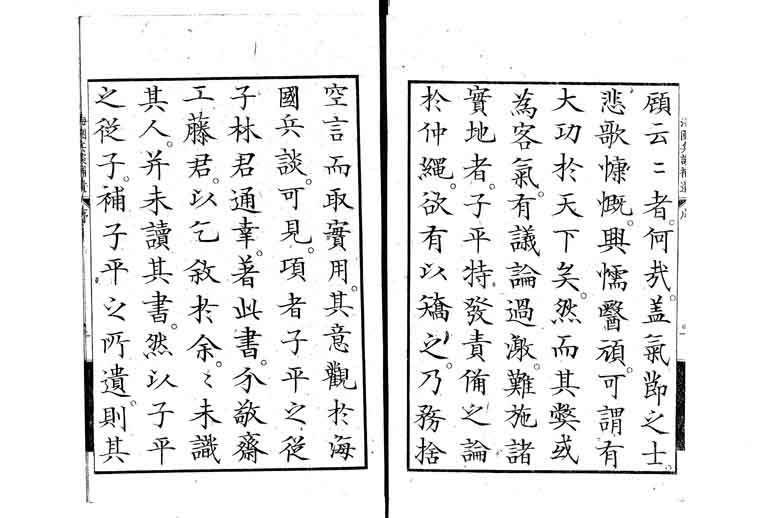 顧云〻者。何哉。盖氣節之士。
悲歌慷慨。興懦醫頑。可謂有
大功於天下矣。然而其弊或
為客氣。有議論過激。難施諸
實地者。子平特發責備之論
於仲繩。欲有以矯之。乃務捨
空言而取實用。其意觀於海
國兵談。可見。項者子平之從
子林君通。幸。著此書。介敬齋
工藤君。以乞敘於余。〻未識
其人。并未讀其書。然以子平
之從子。補子平之所遺。則其